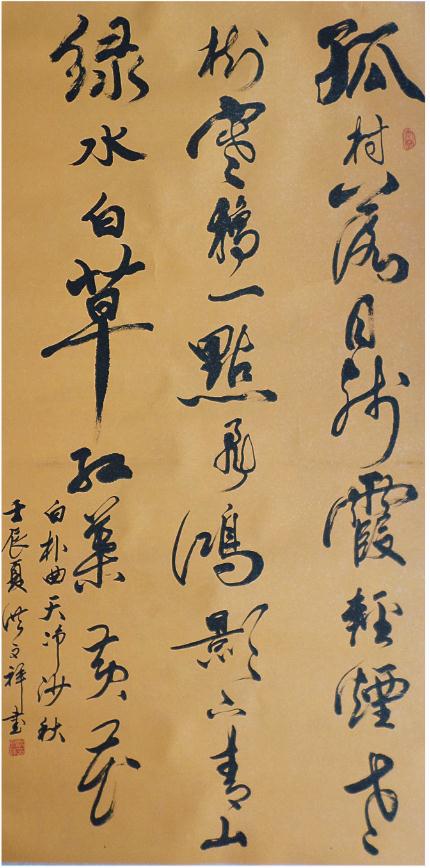 孤村落日残霞輕煙老
樹寒鴉一點飛鴻影下青山
緑水白草紅葉黄花
白朴曲天净沙秋
壬辰夏洪文祥書